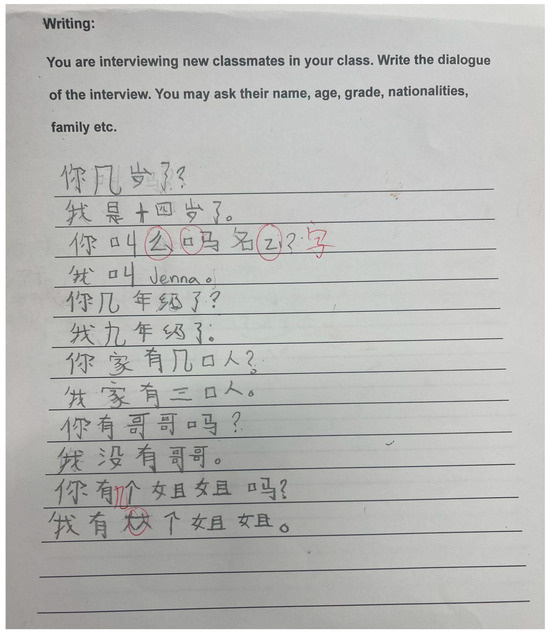 Writing:
You are interviewing new classmates in your class. Write the dialogue
of the interview. You may ask their name, age, grade, nationalities,
family etc.
你几岁了?
我是十四岁了。
你叫么吗名? 字
我叫 Jenna。
你几年级了?
我九年级了。
你家有几口人?
我家有三口人。
你有哥哥吗?
我没有哥哥。
你有几个姐姐吗?
我有个姐姐。